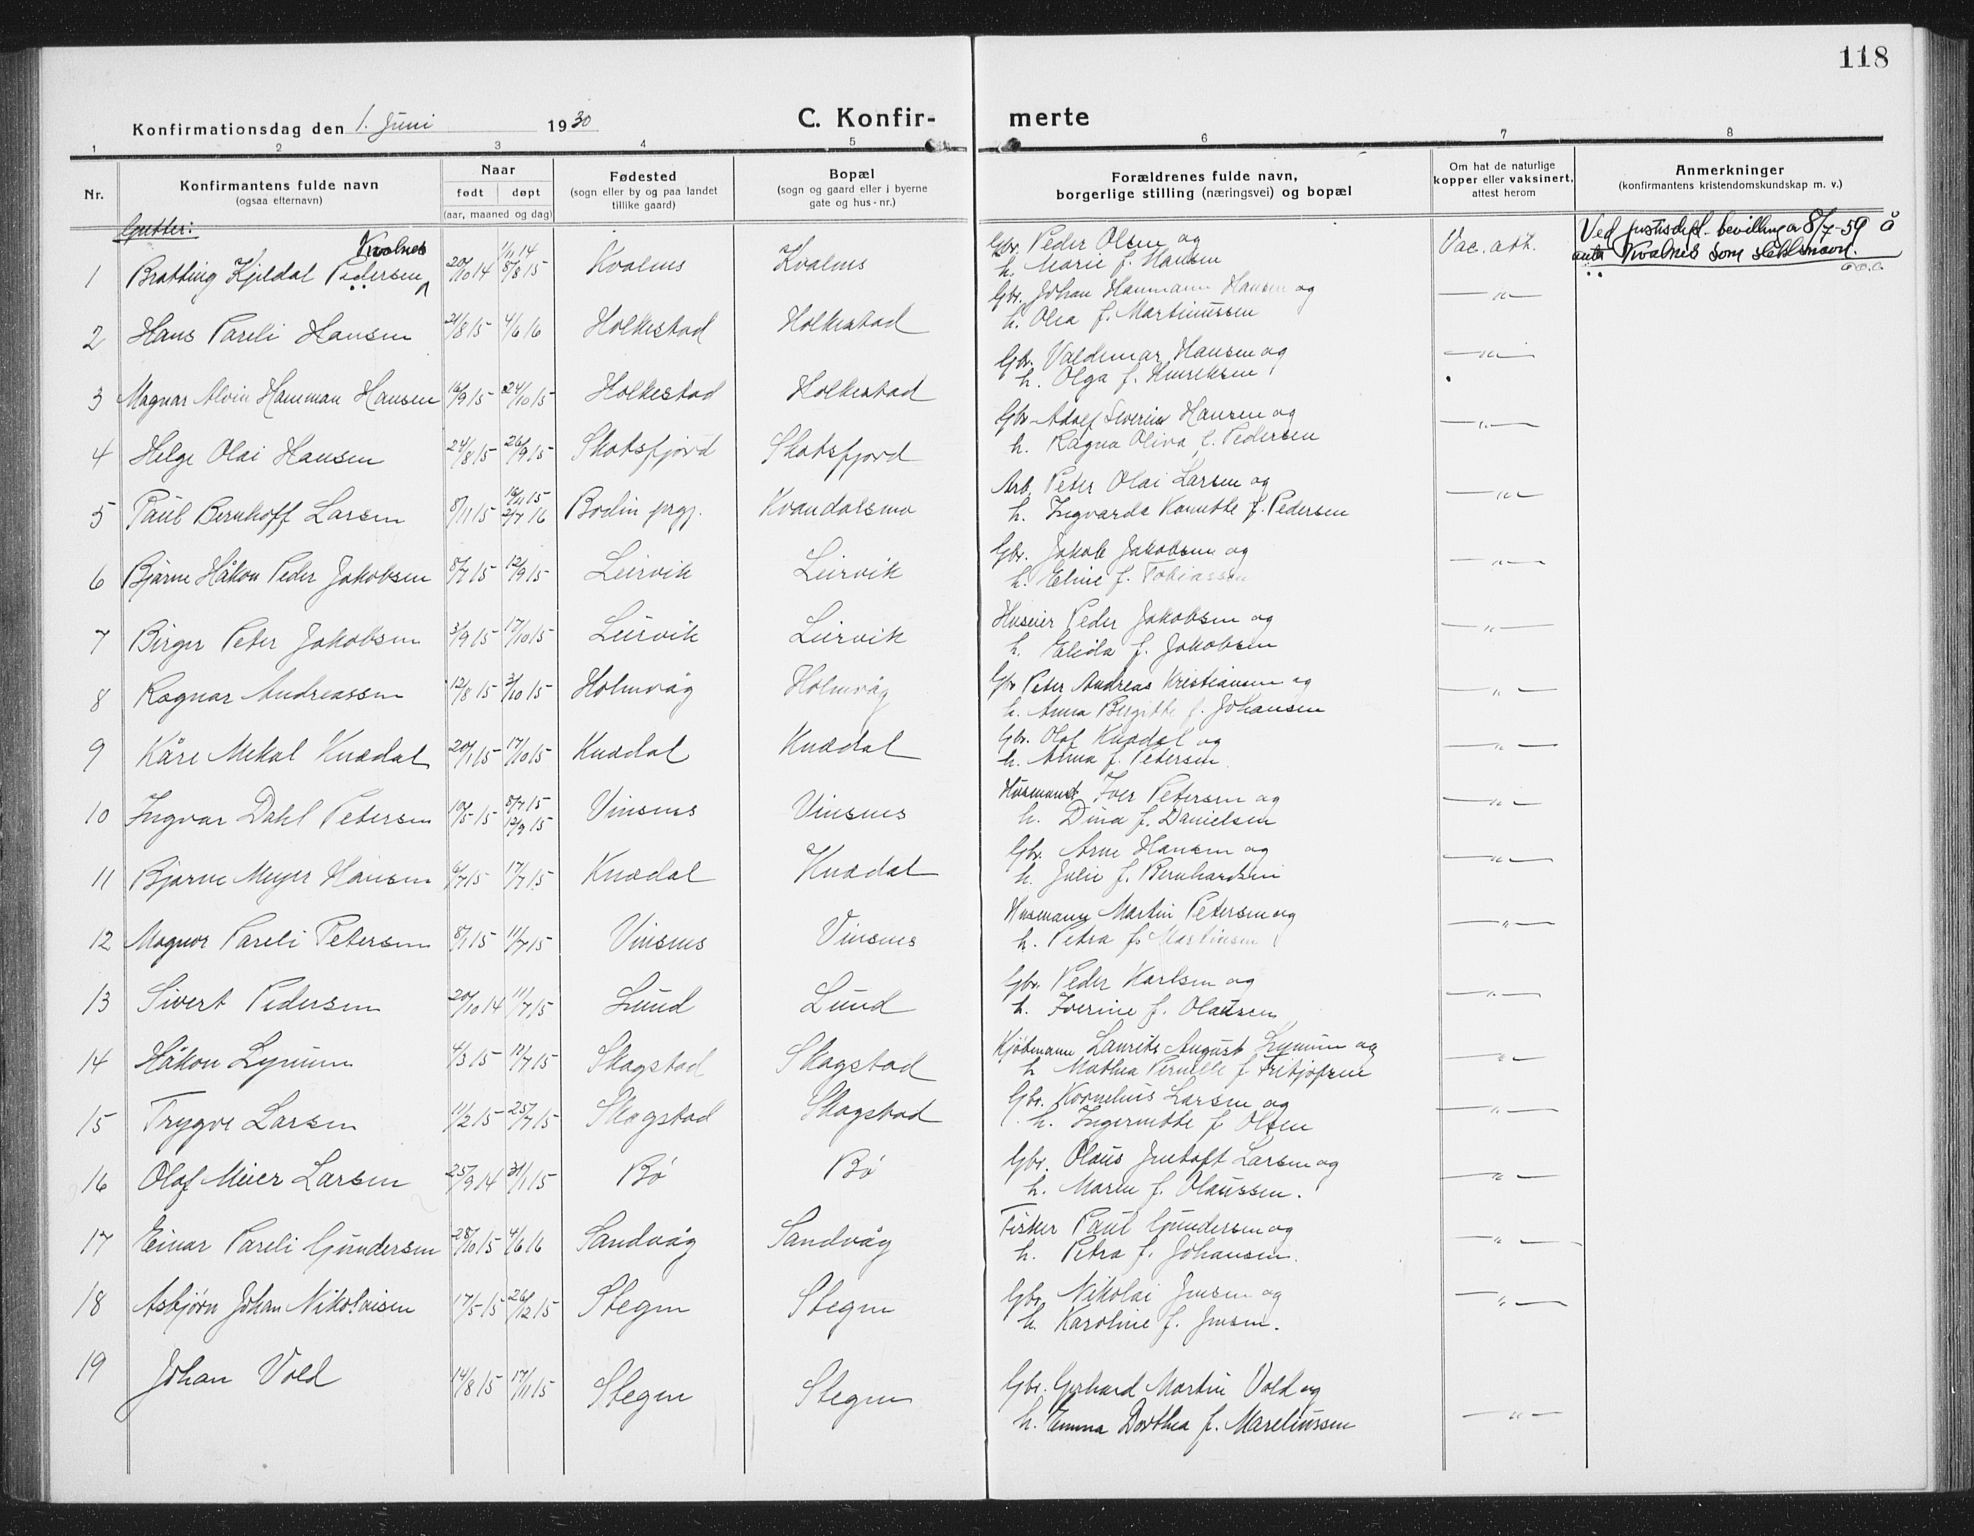 118
Konfirmationsdag den 1. Juni 1930
C. Konfirmerte
1 2 3 4 5 6 7 8
Nr.
Konfirmantens fulde navn
(ogsaa efternavn)
Naar
født døpt
(aar, maaned og dag)
Fødested
(sogn eller by og paa landet
tillike gaard)
Bopæl
(sogn og gaard eller i byerne
gate og hus-nr.)
Forældrenes fulde navn,
borgerlige stilling (næringsvei) og bopæl
Om hat de naturlige
kopper eller vaksinert,
attest herom
Anmerkninger
(konfirmantens kristendomskundskap m. v.)
Gutter:
Kvalnes
1 Bratting Kjeldal Pedersen 20/10 14 1/11 14 8/8 15 Kvalnes Kvalnes Gbr. Peder Olsen og
h. Marie f. Hansen Vac. att.
Ved justisdept. bevilling av 8/7-59 å
anta Kvalnes som slektsnavn.
2 Hans Pareli Hansen 21/8 15 4/6 16 Holkestad Holkestad Gbr. Johan Hammann Hansen og
h. Olea f. Martinussen —"—
3 Magnar Alvin Hamman Hansen 16/9 15 24/10 15 Holkestad Holkestad Gbr. Valdemar Hansen og
h. Olga f. Henriksen —"—
4 Helge Olai Hansen 24/8 15 26/9 15 Skotsfjord Skotsfjord Gbr. Adolf Severin Hansen og
h. Ragna Oliva f. Pedersen —"—
5 Paul Bernhoff Larsen 8/11 15 16/11 15 2/7 16 Bodin prgj. Kvandalsmo Arb. Peter Olai Larsen og
h. Ingvarda Kornette f. Pedersen —"—
6 Bjarne Håkon Peder Jakobsen 8/7 15 12/9 15 Leirvik Leirvik Gbr. Jakob Jakobsen og
h. Eline f. Tobiassen —"—
7 Birger Peter Jakobsen 3/9 15 17/10 15 Leirvik Leirvik Huseier Peder Jakobsen og
h. Elida f. Jakobsen —"—
8 Ragnar Andreassen 12/8 15 3/10 15 Holmvåg Holmvåg Gbr Peter Andreas Kristiansen og
h. Anna Bergitte f. Johansen —"—
9 Kåre Mekal Knædal 20/1 15 17/10 15 Knædal Knædal Gbr. Olaf Knædal og
h. Alma f. Petersen. —"—
10 Ingvar Dahl Petersen 10/5 15 8/7 15 12/9 15 Vinsnes Vinsnes Husmand Iver Petersen og
h. Dina f. Danielsen —"—
11 Bjarne Meyer Hansen 6/7 15 17/7 15 Knædal Knædal Gbr. Arne Hansen og
h. Julie f. Bernhardsen —"—
12 Magnor Pareli Petersen 8/1 15 11/7 15 Vinsnes Vinsnes Husmann Martin Petersen og
h. Petra f. Martinsen —"—
13 Sivert Pedersen 20/10 14 11/7 15 Lund Lund Gbr. Peder Karlsen og
h. Iverine f. Oladsen —"—
14 Håkon Lynum 4/3 15 11/7 15 Skagstad Skagstad Kjøbmann Laurits August Lynum og
h. Mathea Pernille f. —"—
15 Trygve Larsen 11/2 15 25/7 15 Skagstad Skagstad Gbr. Kornelius Larsen og
h. Ingermette f. Olsen —"—
16 Olaf Meier Larsen 25/9 14 31/1 15 Bø Bø Gbr. Olaus Larsen og
h. Maren f. Olaussen. —"—
17 Einar Pareli Gundersen 28/10 15 4/6 16 Sandvåg Sandvåg Fisker Paul Gundersen og
h. Petra f. Johansen. —"—
18 Asbjørn Johan Nikolaisen 17/5 15 26/12 15 Stegen Stegen Gbr. Nikolai Jensen og
h. Karoline f. Jensen. —"—
19 Johan Vold 14/8 15 17/11 15 Stegen Stegen Gbr. Gerhard Martin Vold og
h. Emma Dorthea f. Mareliussen —"—